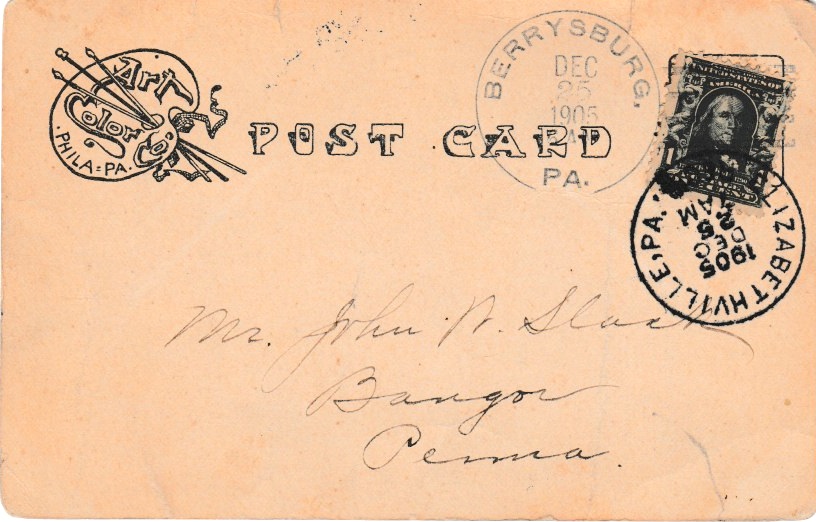 Art
Color Co.
PHILA=PA.
POST CARD
BERRYSBURG,
DEC
25
1905
PA.
UNITED STATES OF
AMERICA
ELIZABETHVILLE, PA.
1905
DEC
25
AM
Mr. John W. Slack
Bangor
Penna.